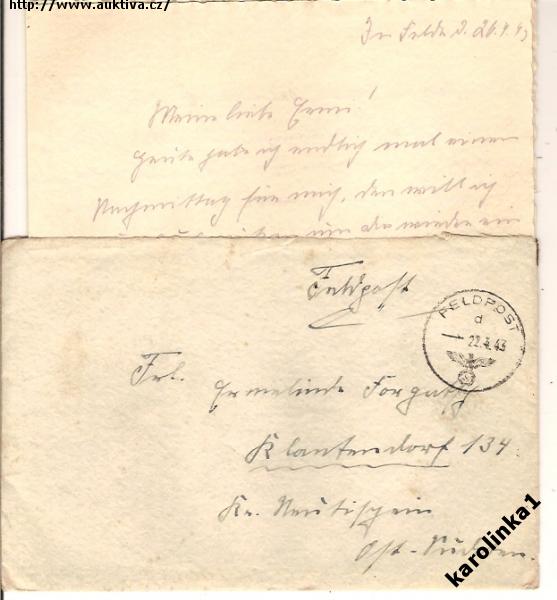 http://www.auktiva.cz/
Im Felde d. 20.4.43
Meine liebe Ermi!
Heute habe ich endlich mal einen
Nachmittag für mich, den will ich
um dir wieder ein
Feldpost
FELDPOST
d
22.4.43
Frl. Ermelinde Forgatsch
Klantendorf 134
Kr. Neutischein
Ost-Sudeten.
karolinka1